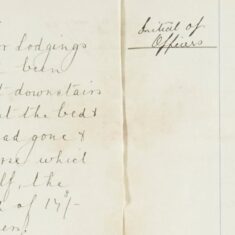 Initial of
Officers
r lodgings
been
t downstairs
t the bed &
ad gone &
rse which
lf, the
of 17/-
en.